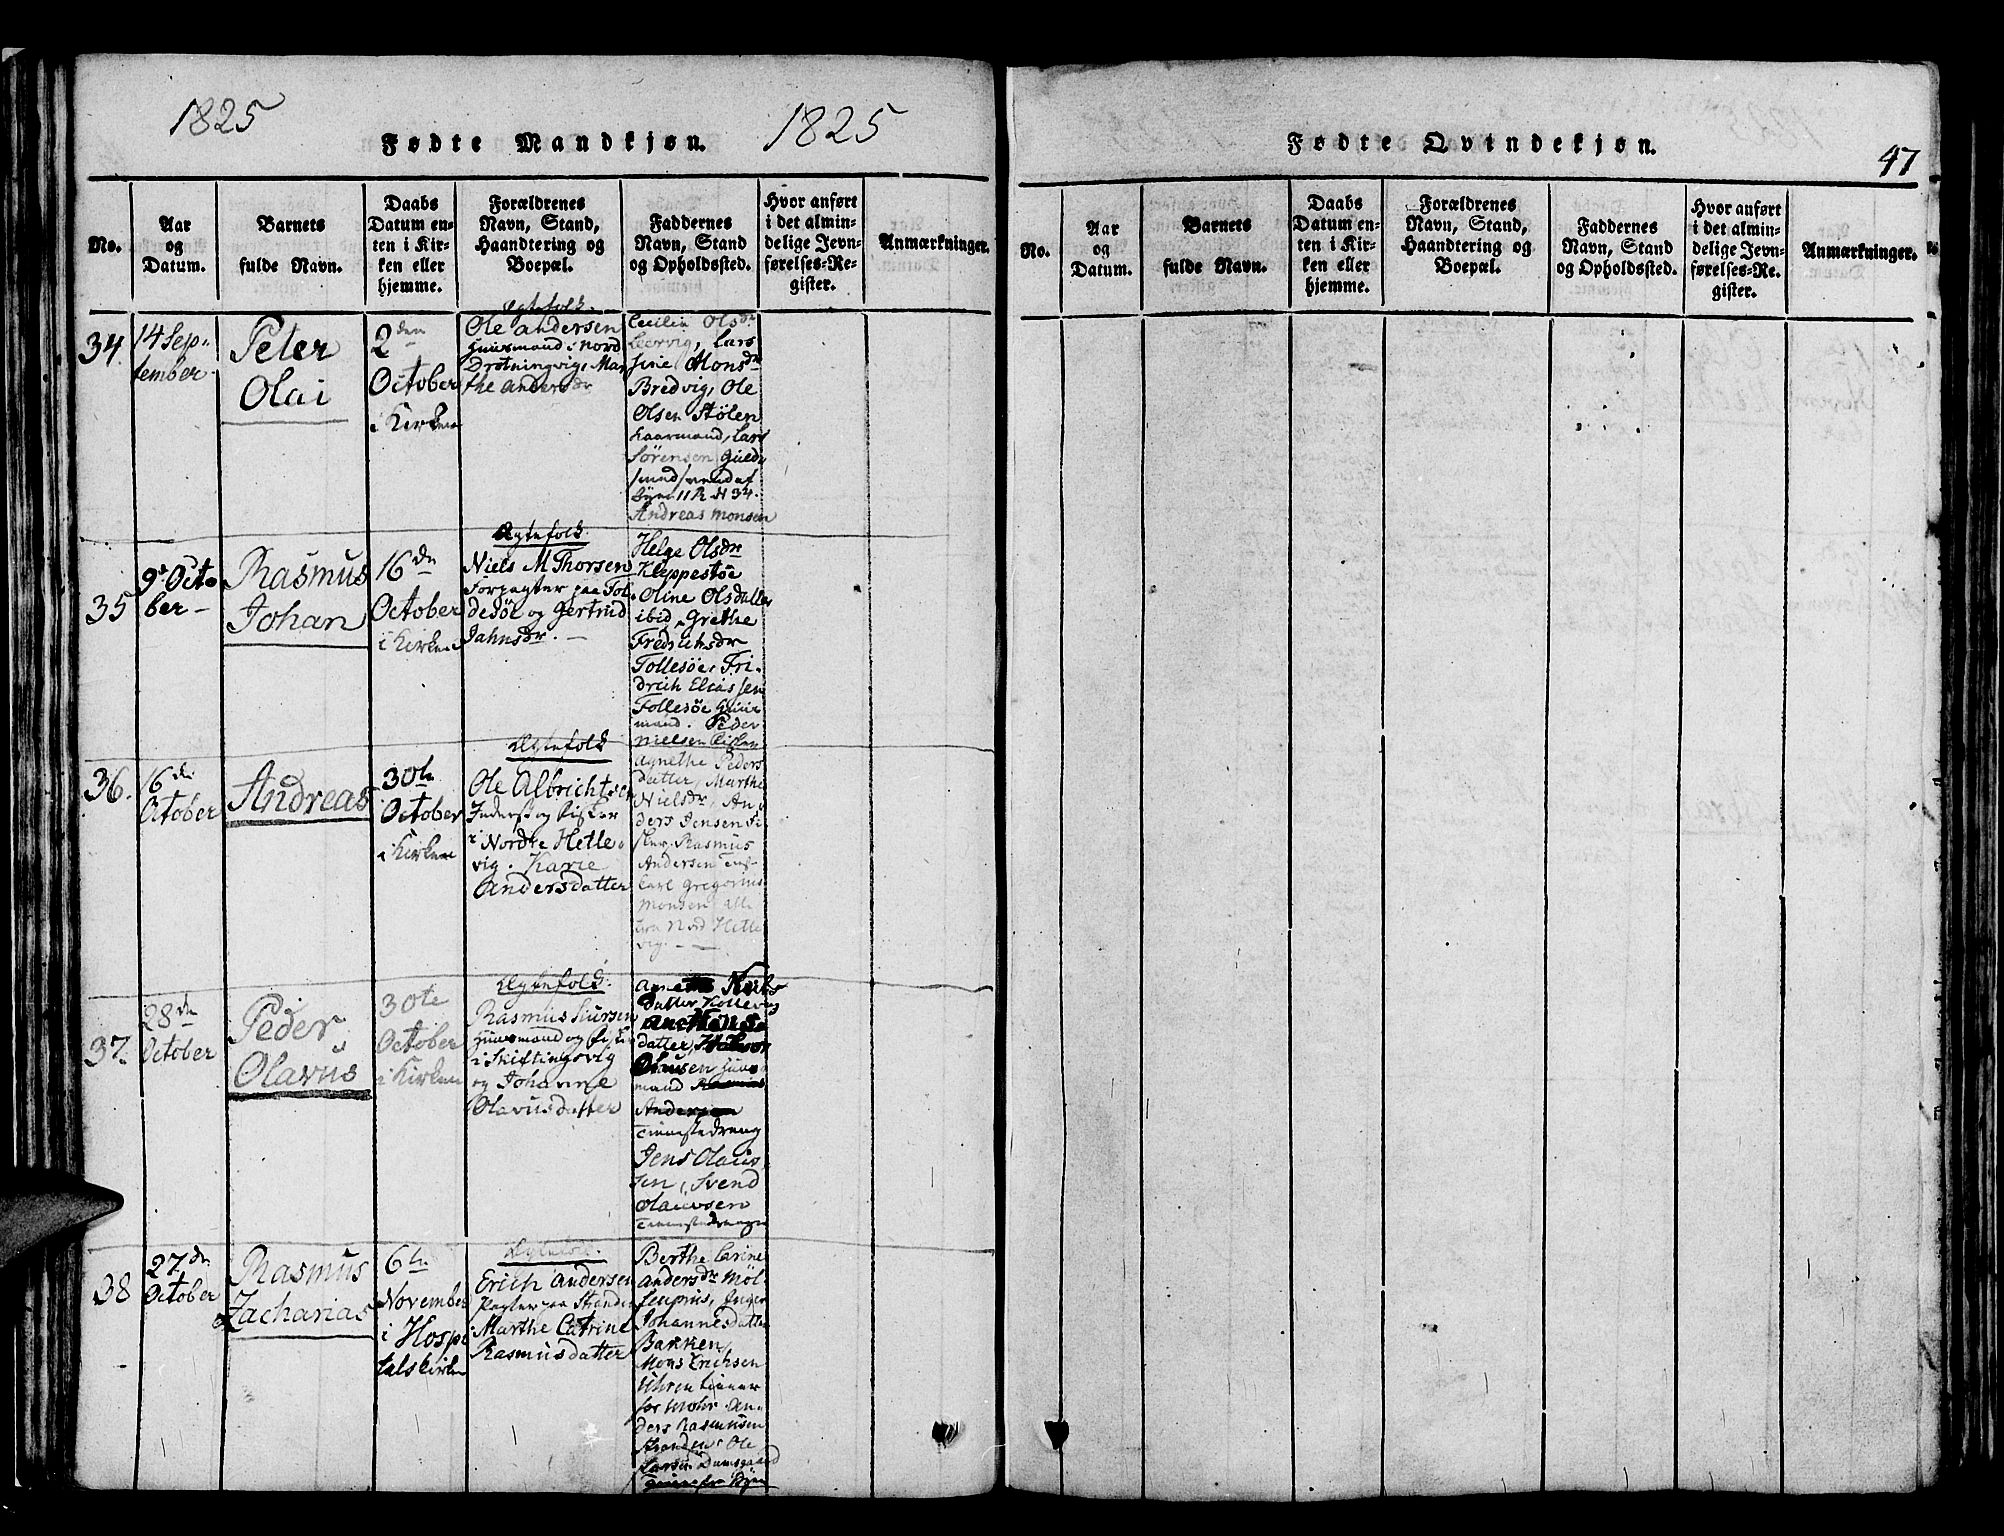 1825
Fødte Mandkjøn.
1825
No.
Aar
og
Datum.
Barnets
fulde Navn.
Daabs
Datum en-
ten i Kir-
ken eller
hjemme.
Forældrenes
Navn, Stand,
Haandtering og
Boepæl.
Faddernes
Navn, Stand
og Opholdssted.
Hvor anført
i det almin-
delige Jevn-
førelses-Re-
gister.
Anmærkninger.
34.
14 Sep-
tember
Peter
Olai
2den
October
i Kirken
Ægtefolk.
Ole Andersen
Huusmand i Nord
Drotningvig, Mar
the Andersdr
Cecilia Olsdr
Leervig, Lars
sine Monsdr
Bredvig, Ole
Olsen Stølen
Laarmand, Lars
Sørensen Guld
smed
Andreas Monsen
35
9d Octo
ber
Rasmus
Johan
16de
October
i Kirken
Ægtefolk
Niels M Thorsen
Forpagter paa Fol
desøe og Gertrud
Jahnsdr.
Helge Olsdr
Kleppestøe
Oline Olsdatter
ibid, Grethe
Fredrichsdr
Follesøe, Fri-
drich Eliassen
Follesøe Huus
mand. Peder
Nielsen Fisker
36.
16de
October
Andreas
30te
October
i Kirken
Ægtefolk
Ole Albrichtsen
Inderst og Fisker
i Nordre Hetle
vig. Karie
Andersdatter
Agnethe Peders
datter, Marthe
Nielsdr, An
ders Jensen Fi
sker, Rasmus
Andersen
Carl Gregorius
Monsen alle
fra Nord Hetle
vig.
37.
28de
October
Peder
Olavus
30te
October
i Kirken
Ægtefolk.
Rasmus
Huusmand og Fisker
i Skiftingsvig
og Johanne
Olavusdatter
datter
datter, Halvor
Olausen Huus
mand Rasmus
Andersen
Tienestedreng
Jens Olaus
sen, Svend
Olauvsen
Tienestedrenge
38
27de
October
Rasmus
Zacharias
6te
November
i Hospi
talskirken
Ægtefolk.
Erich Andersen
Pagter paa Stranden
Marthe Catrine
Rasmusdatter
Berthe Carine
Andersdr Möl
lenpriis, Inger
Johannesdatter
Bakken,
Mons Erichsen
Uhren tiener
for Mohr. An-
ders Rasmusen
Stranden Ole
Larsen Damsgaard
Fødte Qvindekjøn.
47
No.
Aar
og
Datum.
Barnets
fulde Navn.
Daabs
Datum en-
ten i Kir-
ken eller
hjemme.
Forældrenes
Navn, Stand,
Haandtering og
Boepæl.
Faddernes
Navn, Stand
og Opholdssted.
Hvor anført
i det almin-
delige Jevn-
førelses-Re-
gister.
Anmærkninger.